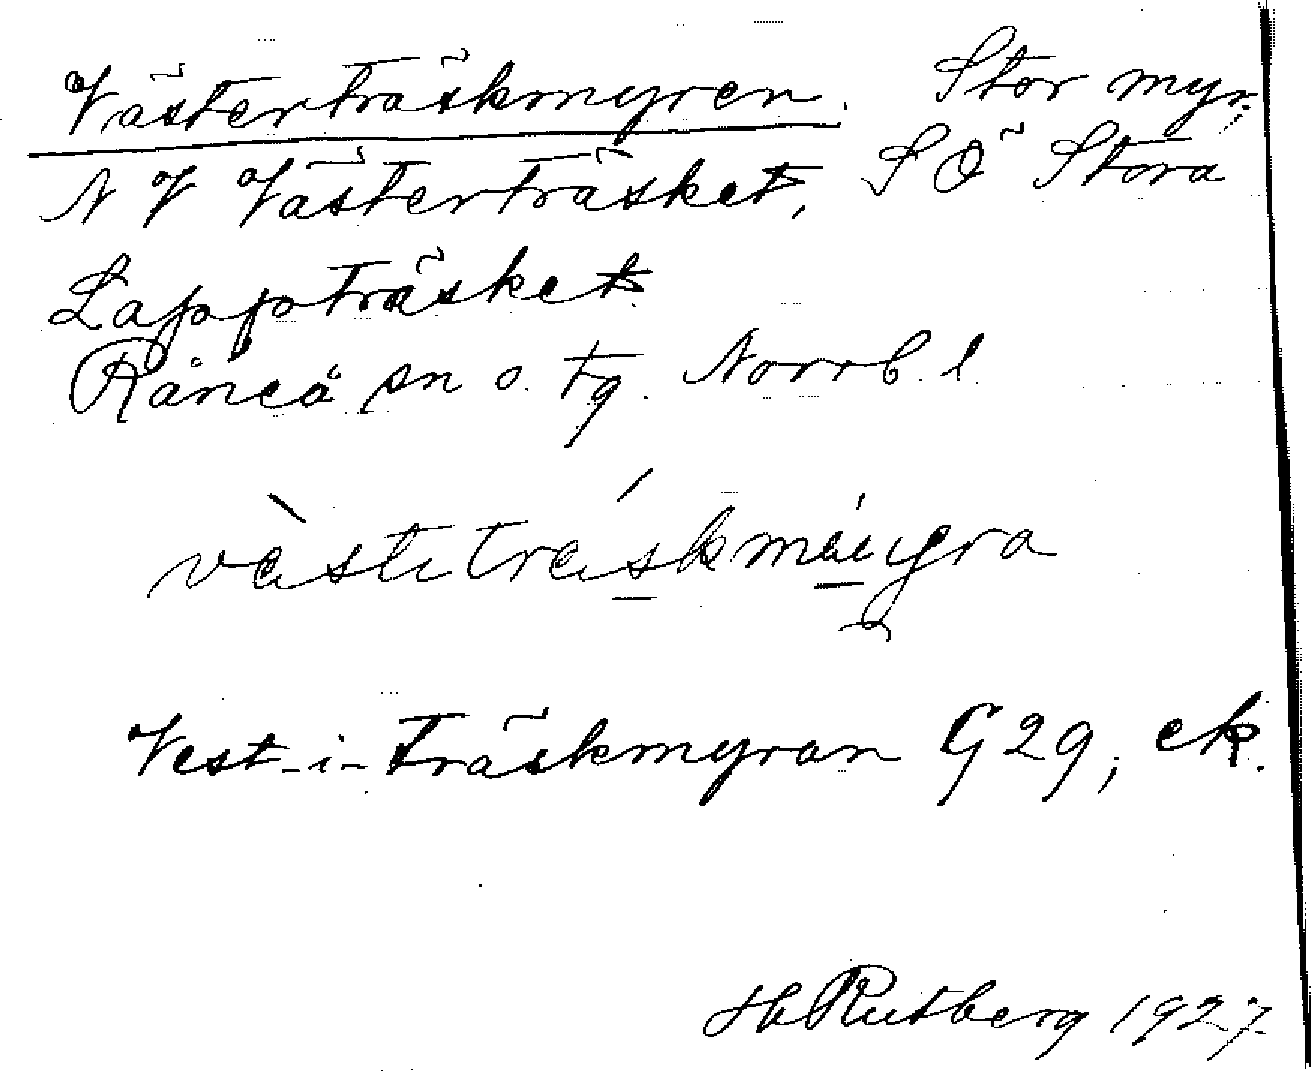 Västerträskmyren. Stor myr
N V Västerträsket, S Ö Stora
Lappträsket.
Råneå sn o. tg. Norrb. l.
Vest-i-träskmyran G29, ek.
H Rutberg 1927